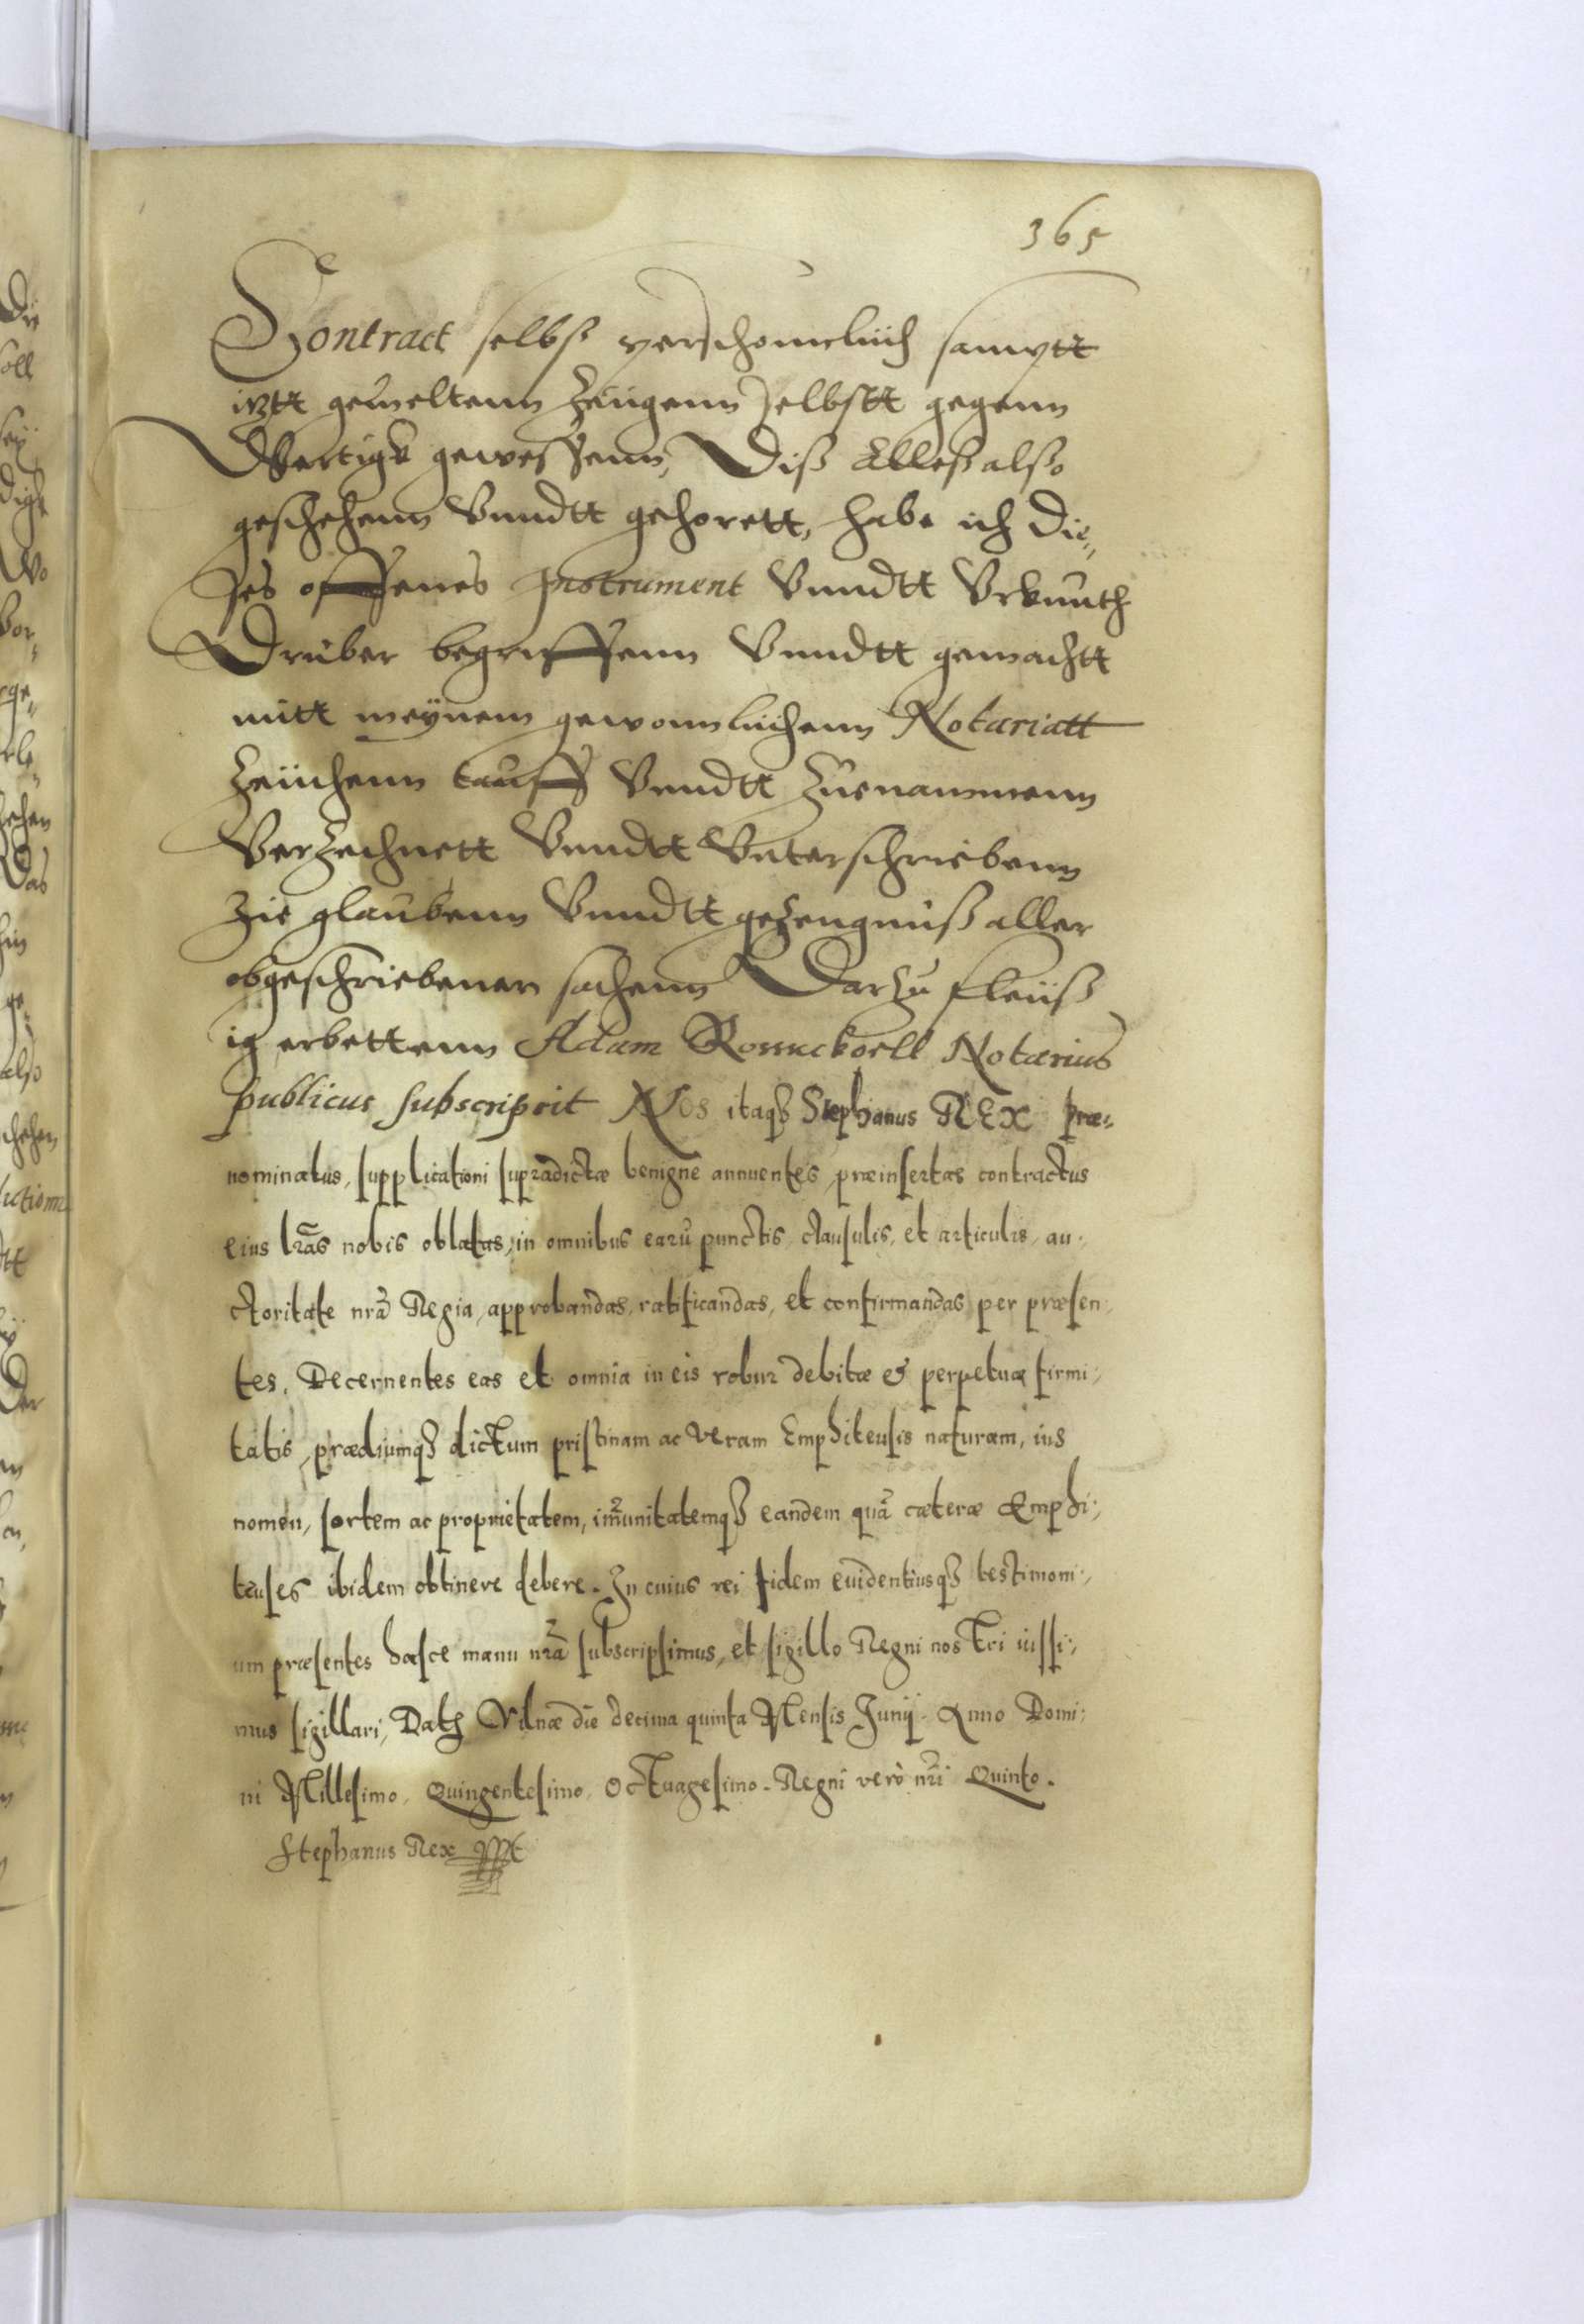 365
Contract selbst perschonnlich samptt
itztt gemeltenn Zeugenn selbstt gegenn
Wertigk gewessenn, Diß Alleß alßo
geschehenn Vnndtt gehorett, habe ich Die„
ses offenes Instrument Vnndtt Vrkunth
Drüber begriffenn Vnndtt gemachtt
mitt meÿnem gewonnlichenn Notariatt
Zeiichenn tauff Vnndtt Zuenammenn
Verzechnett Vnndtt Vnterschriebenn
Zie glaubenn Vnndtt geZeugnüß aller
obgeschriebener sachenn DarZu fleiiß
ig erbettenn Adam Notarius
publicus subscripsit Nos itaqȝ Stephanus REX præ„
nominatus, supplicationi supradictæ benigne annuentes, præinsertas contractus
eius lr̃as nobis oblatas, in omnibus earũ punctis, clausulis, et articulis, au„
ctoritate nr̃a Regia, approbandas, ratificandas, et confirmandas per præsen„
tes, Decernentes eas et omnia in eis robur debitæ & perpetuæ firmi„
tatis, prædiumqȝ dictum pristinam ac veram Emphiteusis naturam, ius
nomen, sortem ac proprietatem, im̃unitatemqȝ eandem quã cæteræ Emphi„
teuses ibidem obtinere debere. In cuius rei fidem euidentiusqȝ testimoni„
um præsentes hasce manu nr̃a subscripsimus, et sigillo Regni nostri iussi„
mus sigillari, Datȝ Vilnæ die decima quinta Mensis Junij. Anno Domi„
ni Millesimo, Quingentesimo, Octuagesimo. Regni verò nr̃i Quinto.
Stephanus Rex